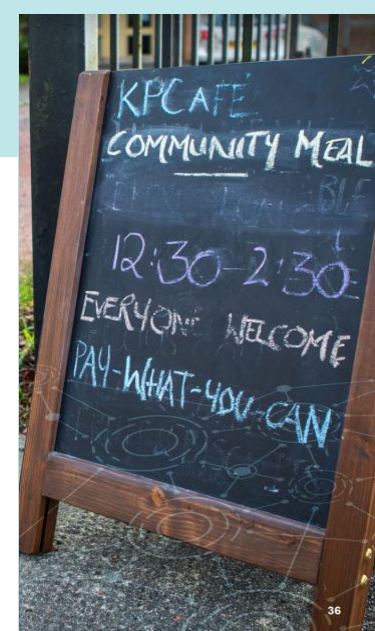 KPCAFE
COMMUNITY MEAL
12:30-2:30
EVERYONE WELCOME
PAY-WHAT-YOU-CAN
36